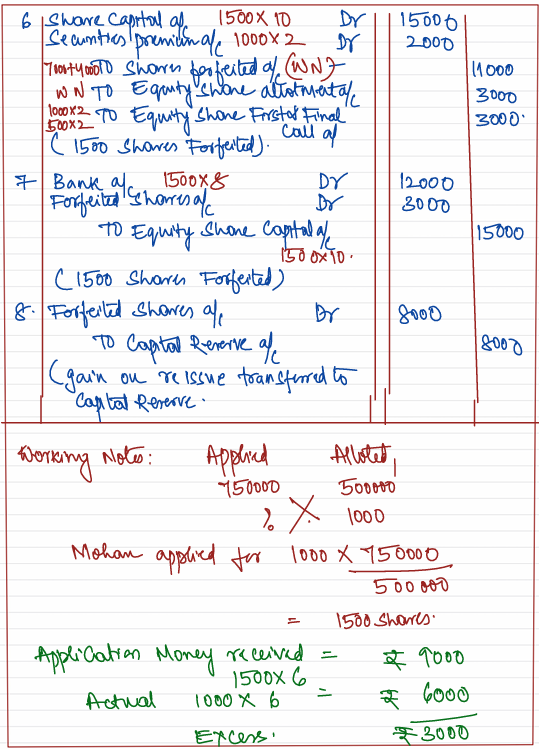 6 Share Capital a/c 1500×10 Dr 15000
Securities premium a/c 1000×2 Dr 2000
7000+4000 To Shares forfeited a/c (WN) 11000
WN To Equity Share allotment a/c 3000
1000×2 To Equity Share First & Final 3000.
500×2 Call a/c
(1500 Shares Forfeited).
7 Bank a/c 1500×8 Dr 12000
Forfeited Shares a/c Dr 3000
To Equity Share Capital a/c 15000
1500×10.
(1500 Shares Forfeited)
8. Forfeited Shares a/c Dr 8000
To Capital Reserve a/c 8000
(gain on re issue transferred to
Capital Reserve.
Working Notes: Applied Alloted
750000 500000
? 1000
Mohan applied for 1000 × 750000
500000
= 1500 Shares.
Application Money received = ₹ 9000
1500×6
Actual 1000×6 = ₹ 6000
Excess. ₹3000